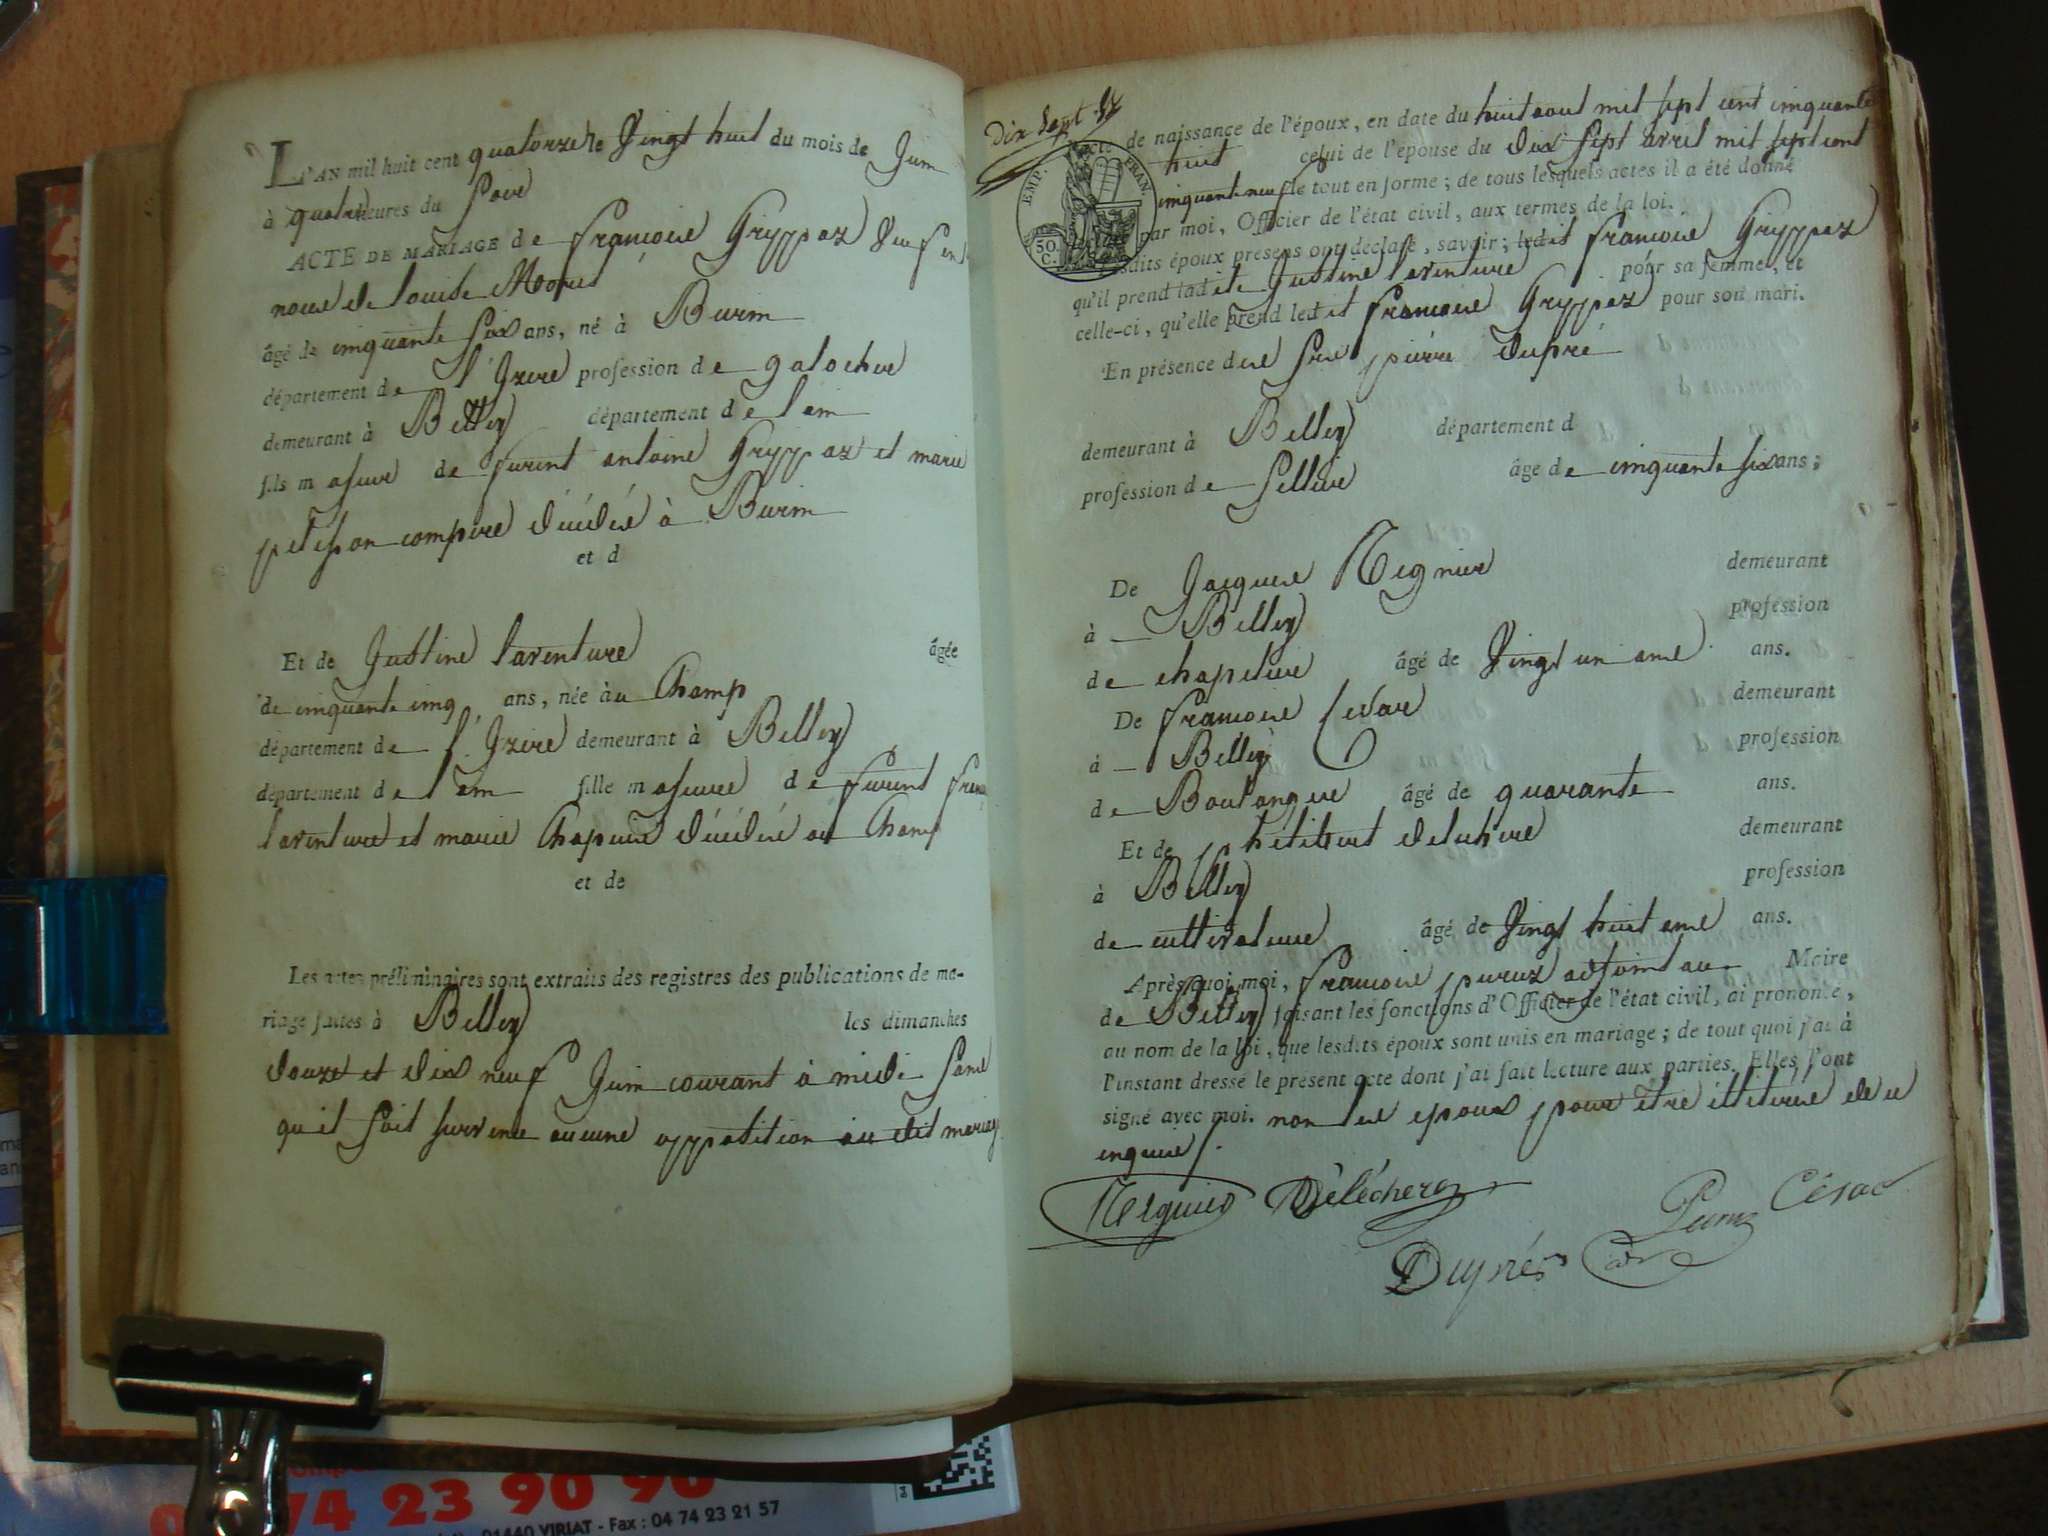 L'AN mil huit cent quatorze le Vingt huit du mois de Juin
à quatre heures du Soir
ACTE DE MARIAGE de francois Gryppaz Veuf en
noces de louise
âgé de cinquante Six ans, né à Burin
département de l'Izere profession de galocher
demeurant à Belley département de l'ain
fils majeur de furent antoine Gryppaz et marie
compere décédés à Burin
et d
Et de Justine laventure âgée
de cinquante cinq ans, née à au Champ
département de l'Izere demeurant à Belley
département de l'ain fille majeure de furent
laventure et marie Chapuis décédés au Champ
et de
Les actes préliminaires sont extraits des registres des publications de ma-
riage faites à Belley les dimanches
douze et dix neuf Juin courant à midi Sans
qu'il soit survenu aucune oppotition au dit mariage
Dix Sept
acte de naissance de l'époux, en date du huit aout mil sept cent cinquante
huit celui de l'épouse du dix sept avril mil sept cent
cinquante neuf le tout en forme; de tous lesquels actes il a été donné
par moi, Officier de l'état civil, aux termes de la loi.
EMP. FRAN.
50. C.
Lesdits époux présens ont déclaré, savoir; ledit francois Gryppaz
qu'il prend ladite Justine laventure pour sa femme, et
celle-ci, qu'elle prend ledit francois Gryppaz pour son mari.
En présence de pierre dupré
demeurant à Belley département d
profession de Sellier âgé de cinquante six ans;
De Jacques Regnier demeurant
à Belley profession
de chapelier âgé de Vingt un ans ans.
De francois demeurant
à Belley profession
de Boulanger âgé de quarante ans.
Et de demeurant
à Belley profession
de cultivateur âgé de Vingt huit ans ans.
Après quoi moi, francois adjoint au Maire
de Belley faisant les fonctions d'Officier de l'état civil, ai prononcé,
au nom de la loi, que lesdits époux sont unis en mariage; de tout quoi j'ai à
l'instant dressé le présent acte dont j'ai fait lecture aux parties. Elles l'ont
signé avec moi. non les epoux pour etre illiteres de ce
enquis
Regnier Délécheraz Césac
Duprés
74 23 90 90
01440 VIRIAT - Fax : 04 74 23 21 57